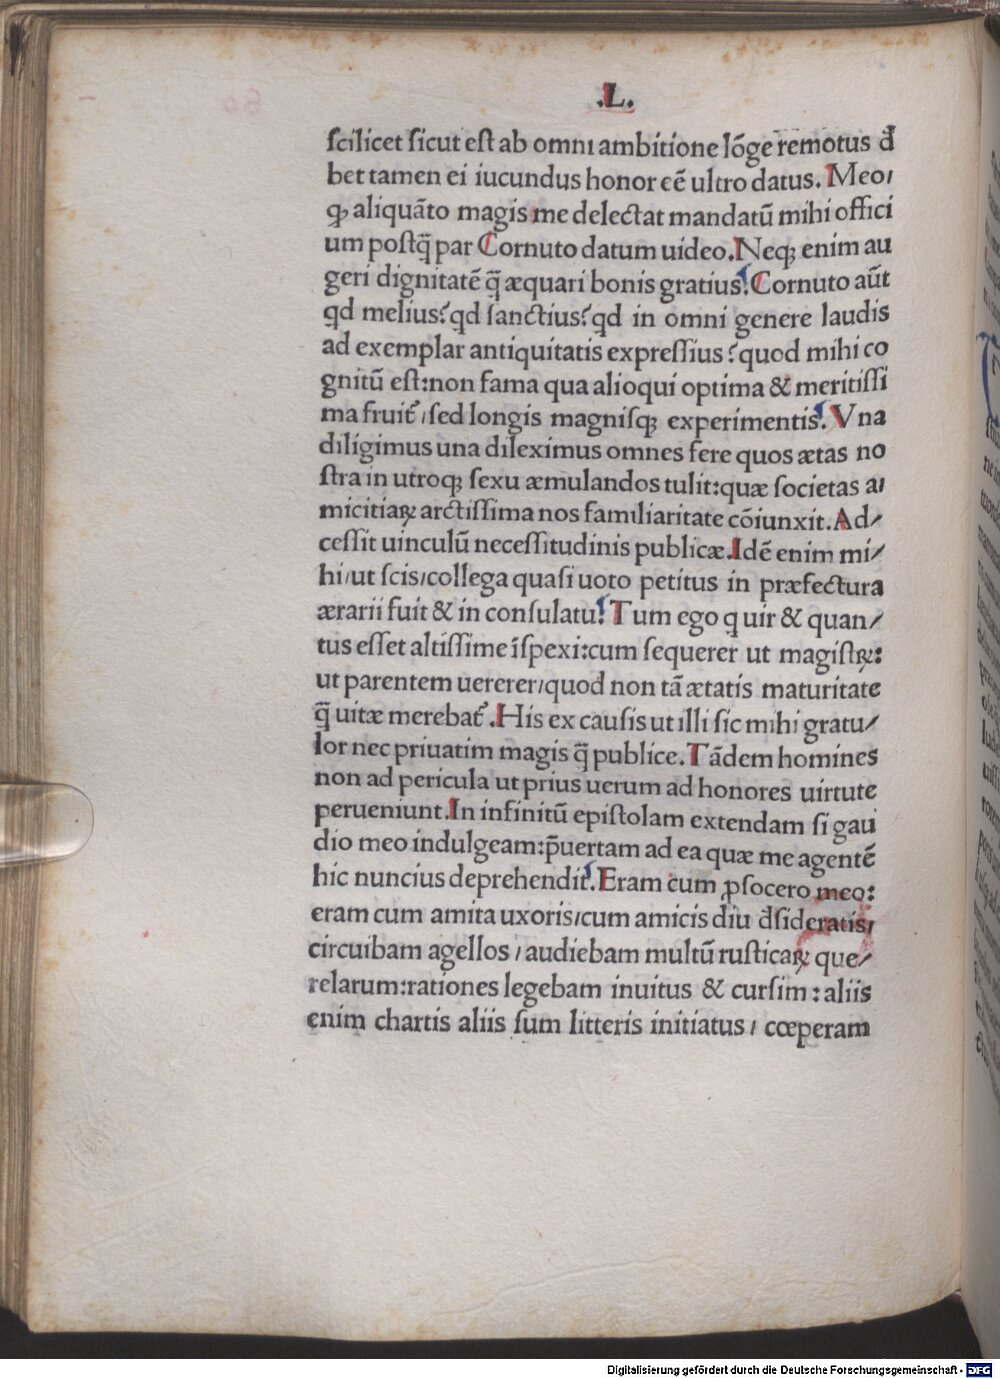 .L.
ſcilicet ſicut eſt ab omni ambitione lōge remotus đ
bet tamen ei iucundus honor eē ultro datus. Meo/
qꝫ aliquāto magis me delectat mandatū mihi offici
um poſtq̄ par Cornuto datum uideo. Neqꝫ enim au
geri dignitatē q̄ æquari bonis gratius. Cornuto aūt
qd melius? qd ſanctius? qd in omni genere laudis
ad exemplar antiquitatis expreſſius? quod mihi co
gnitū eſt: non fama qua alioqui optima & meritiſſi
ma fruit᷑/ ſed longis magniſqꝫ experimentis. Vna
diligimus una dileximus omnes fere quos ætas no
ſtra in utroqꝫ ſexu æmulandos tulit: quæ ſocietas a/
micitiaꝝ arctiſſima nos familiaritate cōiunxit. Ad/
ceſſit uinculū neceſſitudinis publicæ. Idē enim mi/
hi/ ut ſcis/ collega quaſi uoto petitus in præfectura
ærarii fuit & in conſulatu. Tum ego q uir & quan/
tus eſſet altiſſime īſpexi: cum ſequerer ut magiſtꝝ:
ut parentem uererer/ quod non tā ætatis maturitate
q̄ uitæ merebat᷑. His ex cauſis ut illi ſic mihi gratu/
lor nec priuatim magis q̄ publice. Tādem homines
non ad pericula ut prius uerum ad honores uirtute
perueniunt. In infinitū epiſtolam extendam ſi gau
dio meo indulgeam: p̄uertam ad ea quæ me agentē
hic nuncius deprehendit. Eram cum ꝓſocero meo:
eram cum amita uxoris/ cum amicis diu đſideratis/
circuibam agellos/ audiebam multū ruſticaꝝ que/
relarum: rationes legebam inuitus & curſim: aliis
enim chartis aliis ſum litteris initiatus/ cœperam
Digitalisierung gefördert durch die Deutsche Forschungsgemeinschaft - DFG